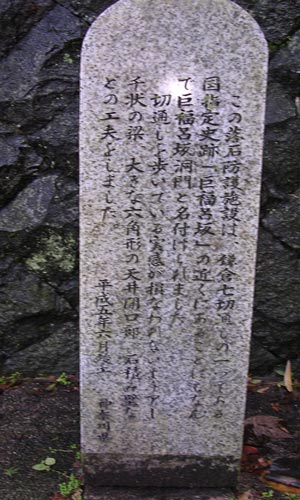 この落石防護施設は、鎌倉七切通しの一つである
国指定史跡「巨福呂坂」の近くにあることにちなん
で巨福呂坂洞門と名付けられました。
切通しを歩いている実感が損なわれないようアー
チ状の梁、大きな六角形の天井開口部、石積み壁な
どの工夫をしました。
平成五年六月竣工 神奈川県